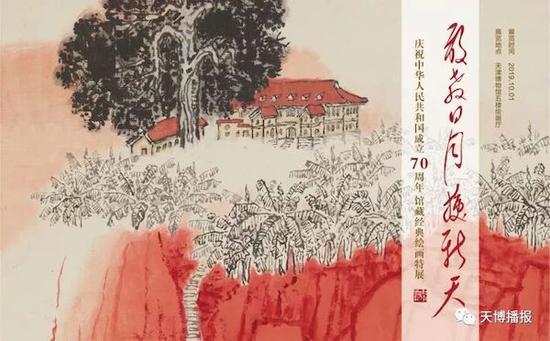 展览时间 2019.10.01
展览地点 天津博物馆五楼绘画厅
敢教日月换新天
庆祝中华人民共和国成立70周年 馆藏经典绘画特展
天博播报